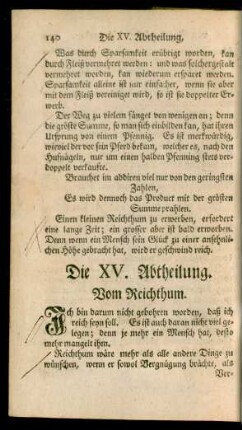 140 Die XV. Abtheilung,
Was durch Sparsamkeit erübrigt worden, kan
durch Fleiß vermehret werden: und was solchergestalt
vermehret worden, kan wiederum ersparet werden.
Sparsamkeit alleine ist nur einfacher, wenn sie aber
mit dem Fleiß vereiniget wird, so ist sie doppelter Er-
werb.
Der Weg zu vielem fänget von wenigen an; denn
die größte Summe, so man sich einbilden kan, hat ihren
Ursprung von einem Pfennig. Es ist merkwürdig,
wieviel der vor sein Pferd bekam, welcher es, nach den
Hufnägeln, nur um einen halben Pfenning stets ver-
doppelt verkaufte.
Brauchet im addiren viel nur von den geringsten
Zahlen,
Es wird dennoch das Product mit der größten
Summe prahlen.
Einen kleinen Reichthum zu erwerben, erfordert
eine lange Zeit; ein grosser aber ist bald erworben.
Denn wenn ein Mensch sein Glück zu einer ansehnli-
chen Höhe gebracht hat, wird er geschwind reich.
Die XV. Abtheilung.
Vom Reichthum.
Ich bin darum nicht gebohren worden, daß ich
reich seyn soll. Es ist auch daran nicht viel ge-
legen; denn je mehr ein Mensch hat, desto
mehr mangelt ihm.
Reichthum wäre mehr als alle andere Dinge zu
wünschen, wenn er sowol Vergnügung brächte, als
Ver-